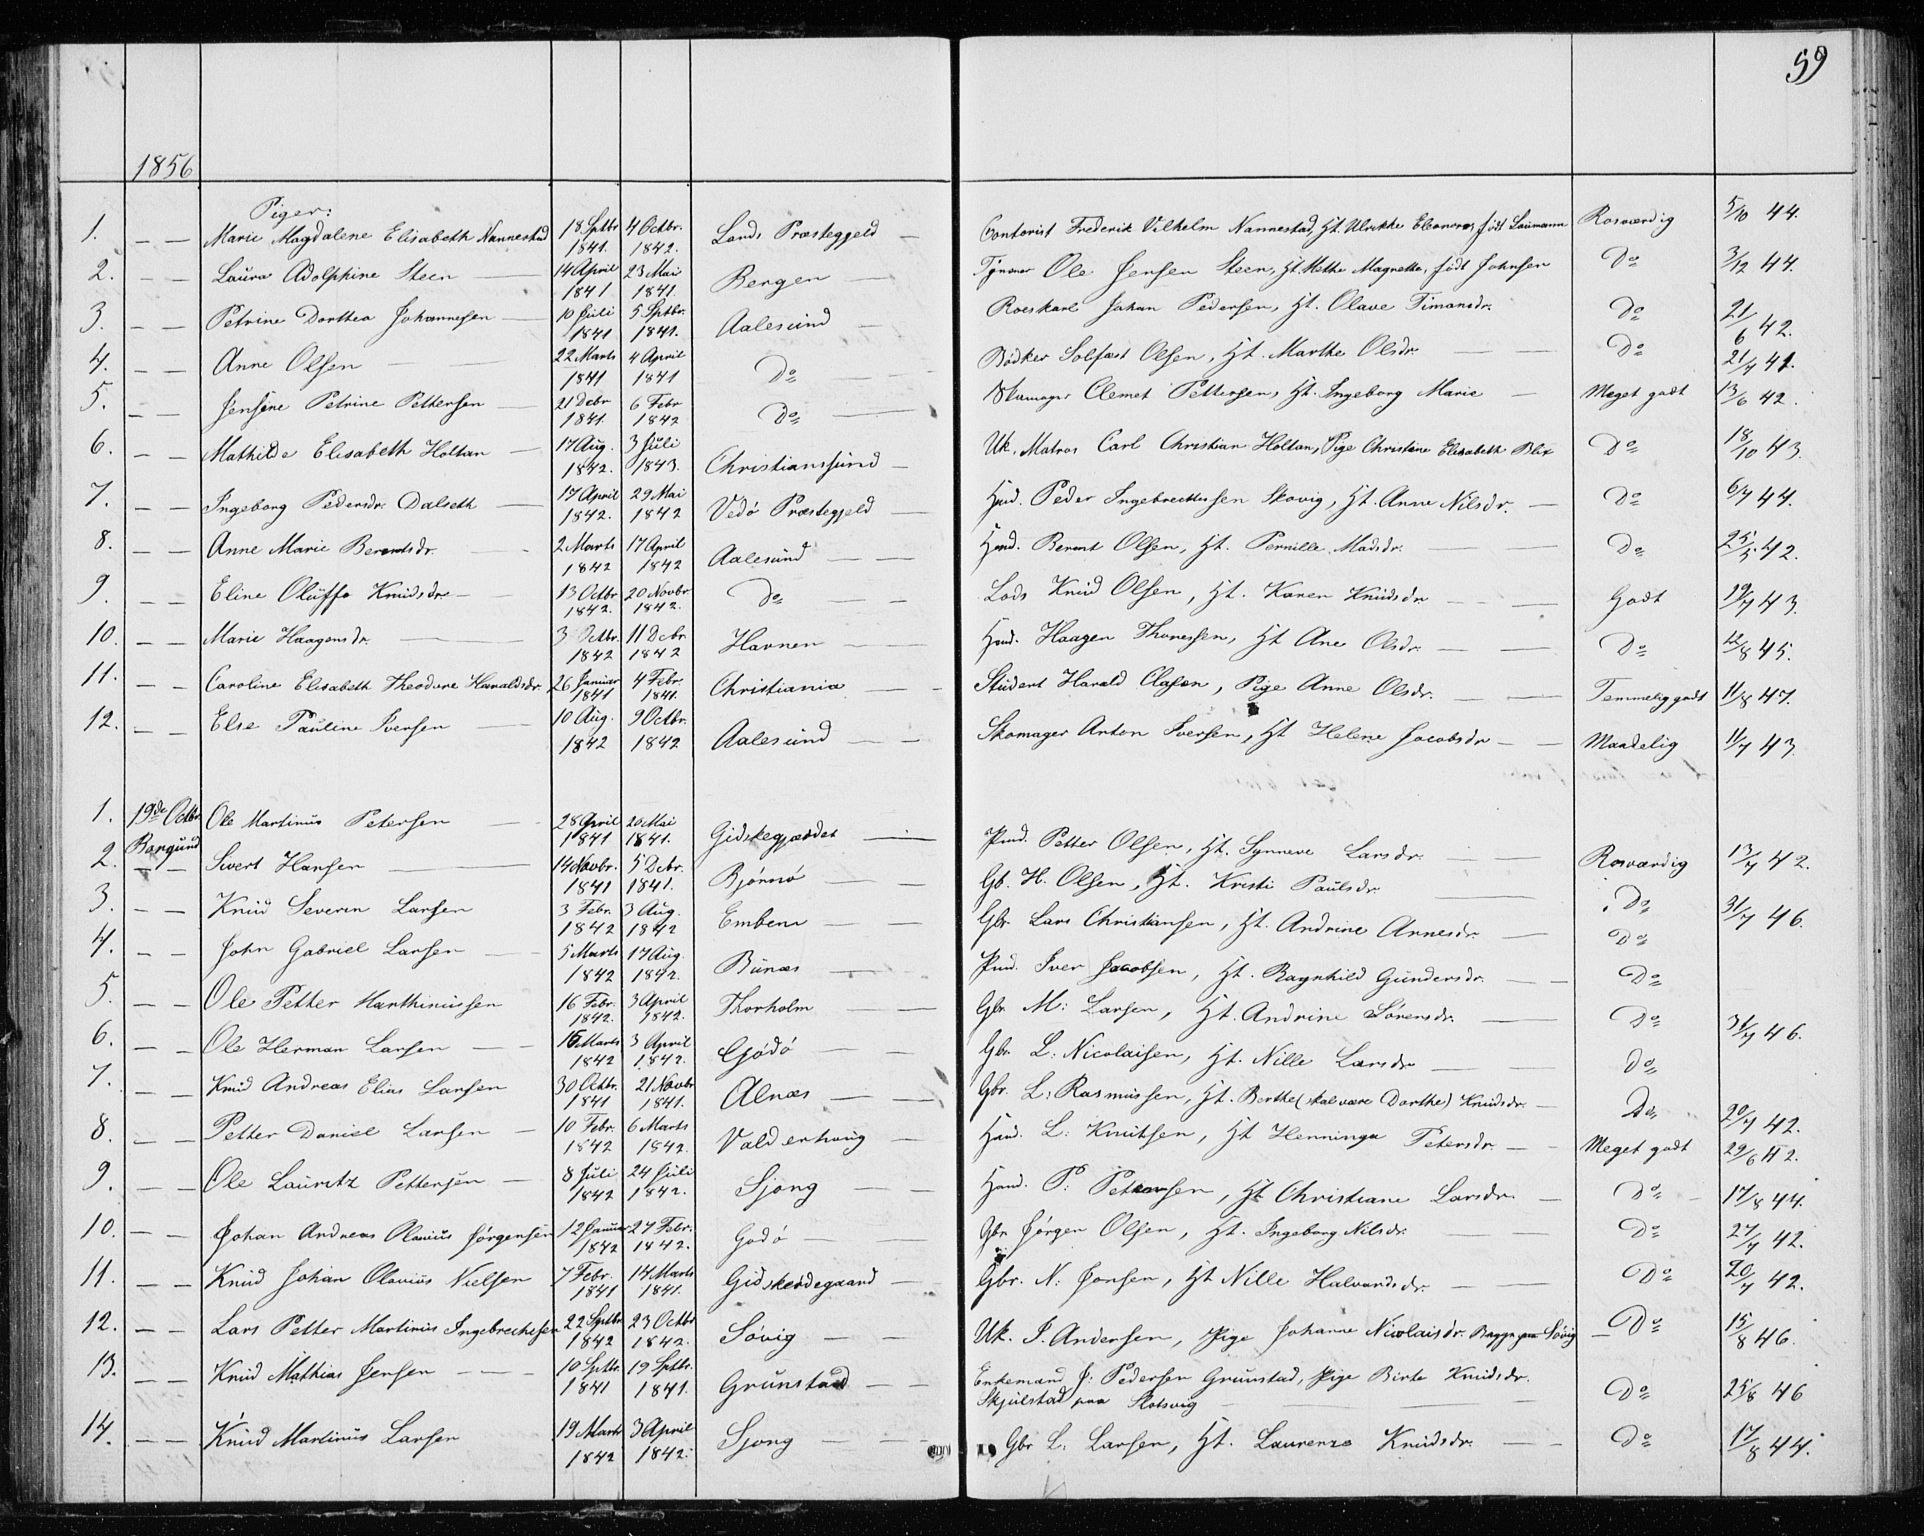 59
1856
Piger:
1. — — Marie Magdalene Elisabeth Nannestad 18 Sptbr 1841. 4 Octbr. 1842. Lands Præstegjeld — Contorist Frederik Vilhelm Nannestad, Ht. Ulrikke Eleonora, født Laumann Rosværdig 5/10 44.
2. — — Laura Adolphine Steen — 14 April 1841 23 Mai 1841. Bergen — Ole Jensen Steen, Ht. Methe Magrethe, født Johnsen Do 3/12 44.
3. — — Petrine Dorthea Johannesen — 10 Juli 1841 5 Sptbr. 1841. Aalesund — Roeskarl Johan Pedersen, Ht. Olave Timansdr. Do 21/6 42.
4. — — Anne Olsen — 22 Marts 1841 4 April 1841 Do — Bødker Solfæst Olsen, Ht. Marthe Olsdr — Do 21/7 41.
5. — — Jensine Petrine Pettersen — 21 Debr 1841. 6 Febr 1842 Do — Clemet Pettersen, Ht. Ingeborg Marie — Meget godt 13/6 42.
6. — — Mathilde Elisabeth Holtan — 17 Aug. 1842. 3 Juli 1843. Christianssund — Uk. Matros Carl Christian Holtan, Pige Christine Elisabeth Blix Do 18/10 43.
7. — — Ingeborg Pedersdr. Dalseth — 17 April 1842. 29 Mai 1842 Vedø Præstegjeld — Hmd. Peder Ingebrechtsen Skovig, Ht. Anne Nilsdr. — Do 6/7 44.
8. — — Anne Marie Berentsdr. — 2 Marts 1842 17 April 1842 Aalesund — Hmd. Berent Olsen, Ht. Pernille Madsdr. — Do 25/5. 42.
9. — — Eline Oluffa Knudsdr — 13 Octbr 1842. 20 Novbr 1842. Do — Lods Knud Olsen, Ht. Karen Knudsdr — Godt 29/7 43.
10. — — Marie Haagensdr. — 3 Octbr. 1842 11 Debr 1842 Havnen — Hmd. Haagen Thoresen, Ht Ane Olsdr. — Do 12/8 45.
11. — — Caroline Elisabeth Theodore Haraldsdr. 26 Januar 1841 4 Febr. 1841. Christiania — Student Harald Clasen, Pige Anne Olsdr. — Temmelig godt 11/8 47.
12. — — Else Pauline Iversen — 10 Aug. 1842 9 Octbr. 1842 Aalesund — Skomager Anton Iversen, Ht Helene Jacobsdr — Maadelig 11/7 43.
1. 19de Octbr. Borgund Ole Martinus Petersen — 28 April 1841 20 Mai 1841. Gidskegjærdet — Pmd. Petter Olsen, Ht. Synneve Larsdr. — Rosværdig 13/7 42.
2. — — Sivert Hansen — 14 Novbr. 1841 5 Debr. 1841. Bjørnø — Gb. H. Olsen, Ht. Kristi Paulsdr. — Do 31/7 46.
3. — — Knud Severin Larsen 3 Febr. 1842 3 Aug. 1842 Emblem — Gbr Lars Christiansen, Ht. Andrine Annesdr. — Do
4. — — John Gabriel Larsen — 5 Marts 1842 17 Aug. 1842. Bunæs — Pmd. Iver Jacobsen, Ht. Ragnhild Gundersdr. — Do
5. — — Ole Petter Marthinussen 16 Febr. 1842. 3 April 1842. Thorholm — Gbr M: Larsen, Ht. Andrine Sørensdr. — Do 31/7 46.
6. — — Ole Herman Larsen — 16 Marts 1842 3 April 1842. Gjødø — Gbr L: Nicolaisen, Ht. Nille Larsdr — Do
7. — — Knud Andreas Elias Larsen 30 Octbr. 1841 21 Novbr 1841. Alnæs — Gbr. L: Rasmussen, Ht. Berthe (skal være Dorthe) Knudsdr. — Do 20/7 42.
8. — — Petter Daniel Larsen — 10 Febr. 1842 6 Marts 1842. Valderhoug — Hmd. L: Knutsen, Ht Henninga Petersdr. — Meget godt 29/6 42.
9. — — Ole Lauritz Pettersen — 8 Juli 1842 24 Juli 1842. Sjong — Hmd. P: Petersen, Ht Christiane Larsdr. — Do 17/8 44.
10. — — Johan Andreas Olavius Jørgensen 12 Januar 1842 27 Febr. 1842. Godø — Gbr. Jørgen Olsen, Ht. Ingeborg Nilsdr. — Do 27/7 42.
11. — — Knud Johan Olavius Nielsen 7 Febr. 1841 14 Marts 1841. Gidskeødegaard — Gbr. N: Jonsen, Ht Nille Halvardsdr. — Do 20/7 42.
12. — — Lars Petter Martinus Ingebrechtsen 22 Sptbr 1842 23 Octbr 1842. Søvig — Uk. I. Andersen, Pige Johanne Nicolaisdr. Bagge paa Søvig — Do 15/8 46.
13. — — Knud Mathias Jensen — 10 Sptbr. 1841 19 Sptbr. 1841. Grunstad — Enkemand J: Pedersen Grunstad, Pige Birte Knudsdr.
Skjulstad paa Slotsvig — Do 25/8 46
14. — — Knud Martinus Larsen 19 Marts 1842 3 April 1842. Sjong — Gbr L: Larsen, Ht. Laurenze Knudsdr. — Do 17/8 44.